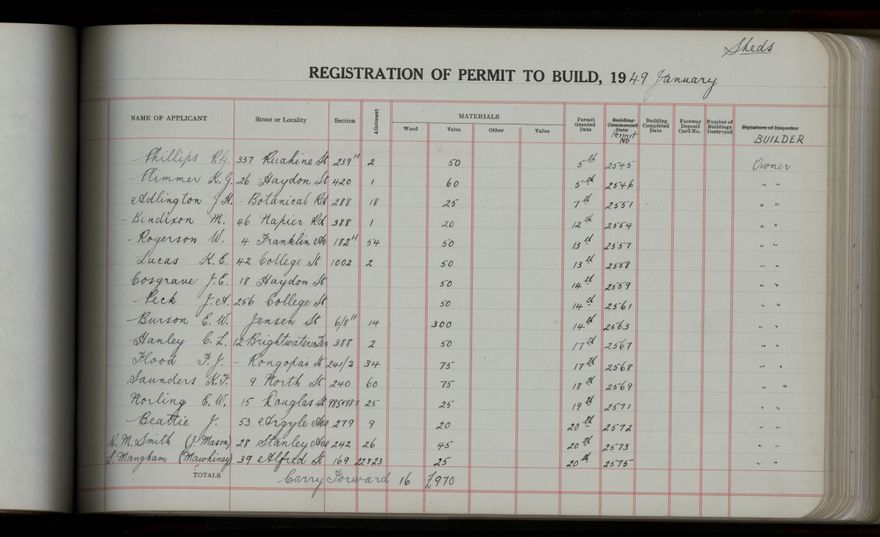 Sheds
REGISTRATION OF PERMIT TO BUILD, 1949 January
NAME OF APPLICANT Street or Locality Section Allotment MATERIALS Wood Value Other Value Permit Granted Date Building Commenced Date Permit No Building Completed Date Footway Deposit Card No. Number of Buildings Destroyed Signature of Inspector BUILDER
Phillips R.G. 337 Ruahine St 239H 2 50 5th 2545 Owner
Plimmer K.G. 26 Haydon St 420 1 60 5th 2546 " "
Adlington J.H. - Botanical Rd 288 18 25 7th 2551 " "
Bendixon M. 46 Napier Rd 388 1 20 12th 2554 " "
Rogerson W. 4 Franklin Av 182H 54 50 13th 2557 " "
Lucas K.E. 42 College St 1002 2 50 13th 2558 " "
Cosgrave J.E. 18 Haydon St 50 14th 2559 " "
Peck J.A. 256 College St 50 14th 2561 " "
Burson E.W. Jensen St 6/8H 14 300 14th 2563 " "
Hanley C.L. 12 Brightwater Ter 388 2 50 17th 2567 " "
Flood F.J. - Rongopai St 241/2 34 75 17th 2568 " "
Saunders K.F. 9 North St 240 60 75 18th 2569 " "
Norling E.W. 15 Douglas St 25 25 19th 2571 " "
Beattie J. 53 Argyle Ave 279 9 20 20th 2572 " "
W.M. Smith (J. Mason) 28 Stanley Ave 242 26 45 20th 2573 " "
L. Mangham (Mawhiney) 39 Alfred St 169 22&23 25 20th 2575 " "
TOTALS Carry Forward 16 £970